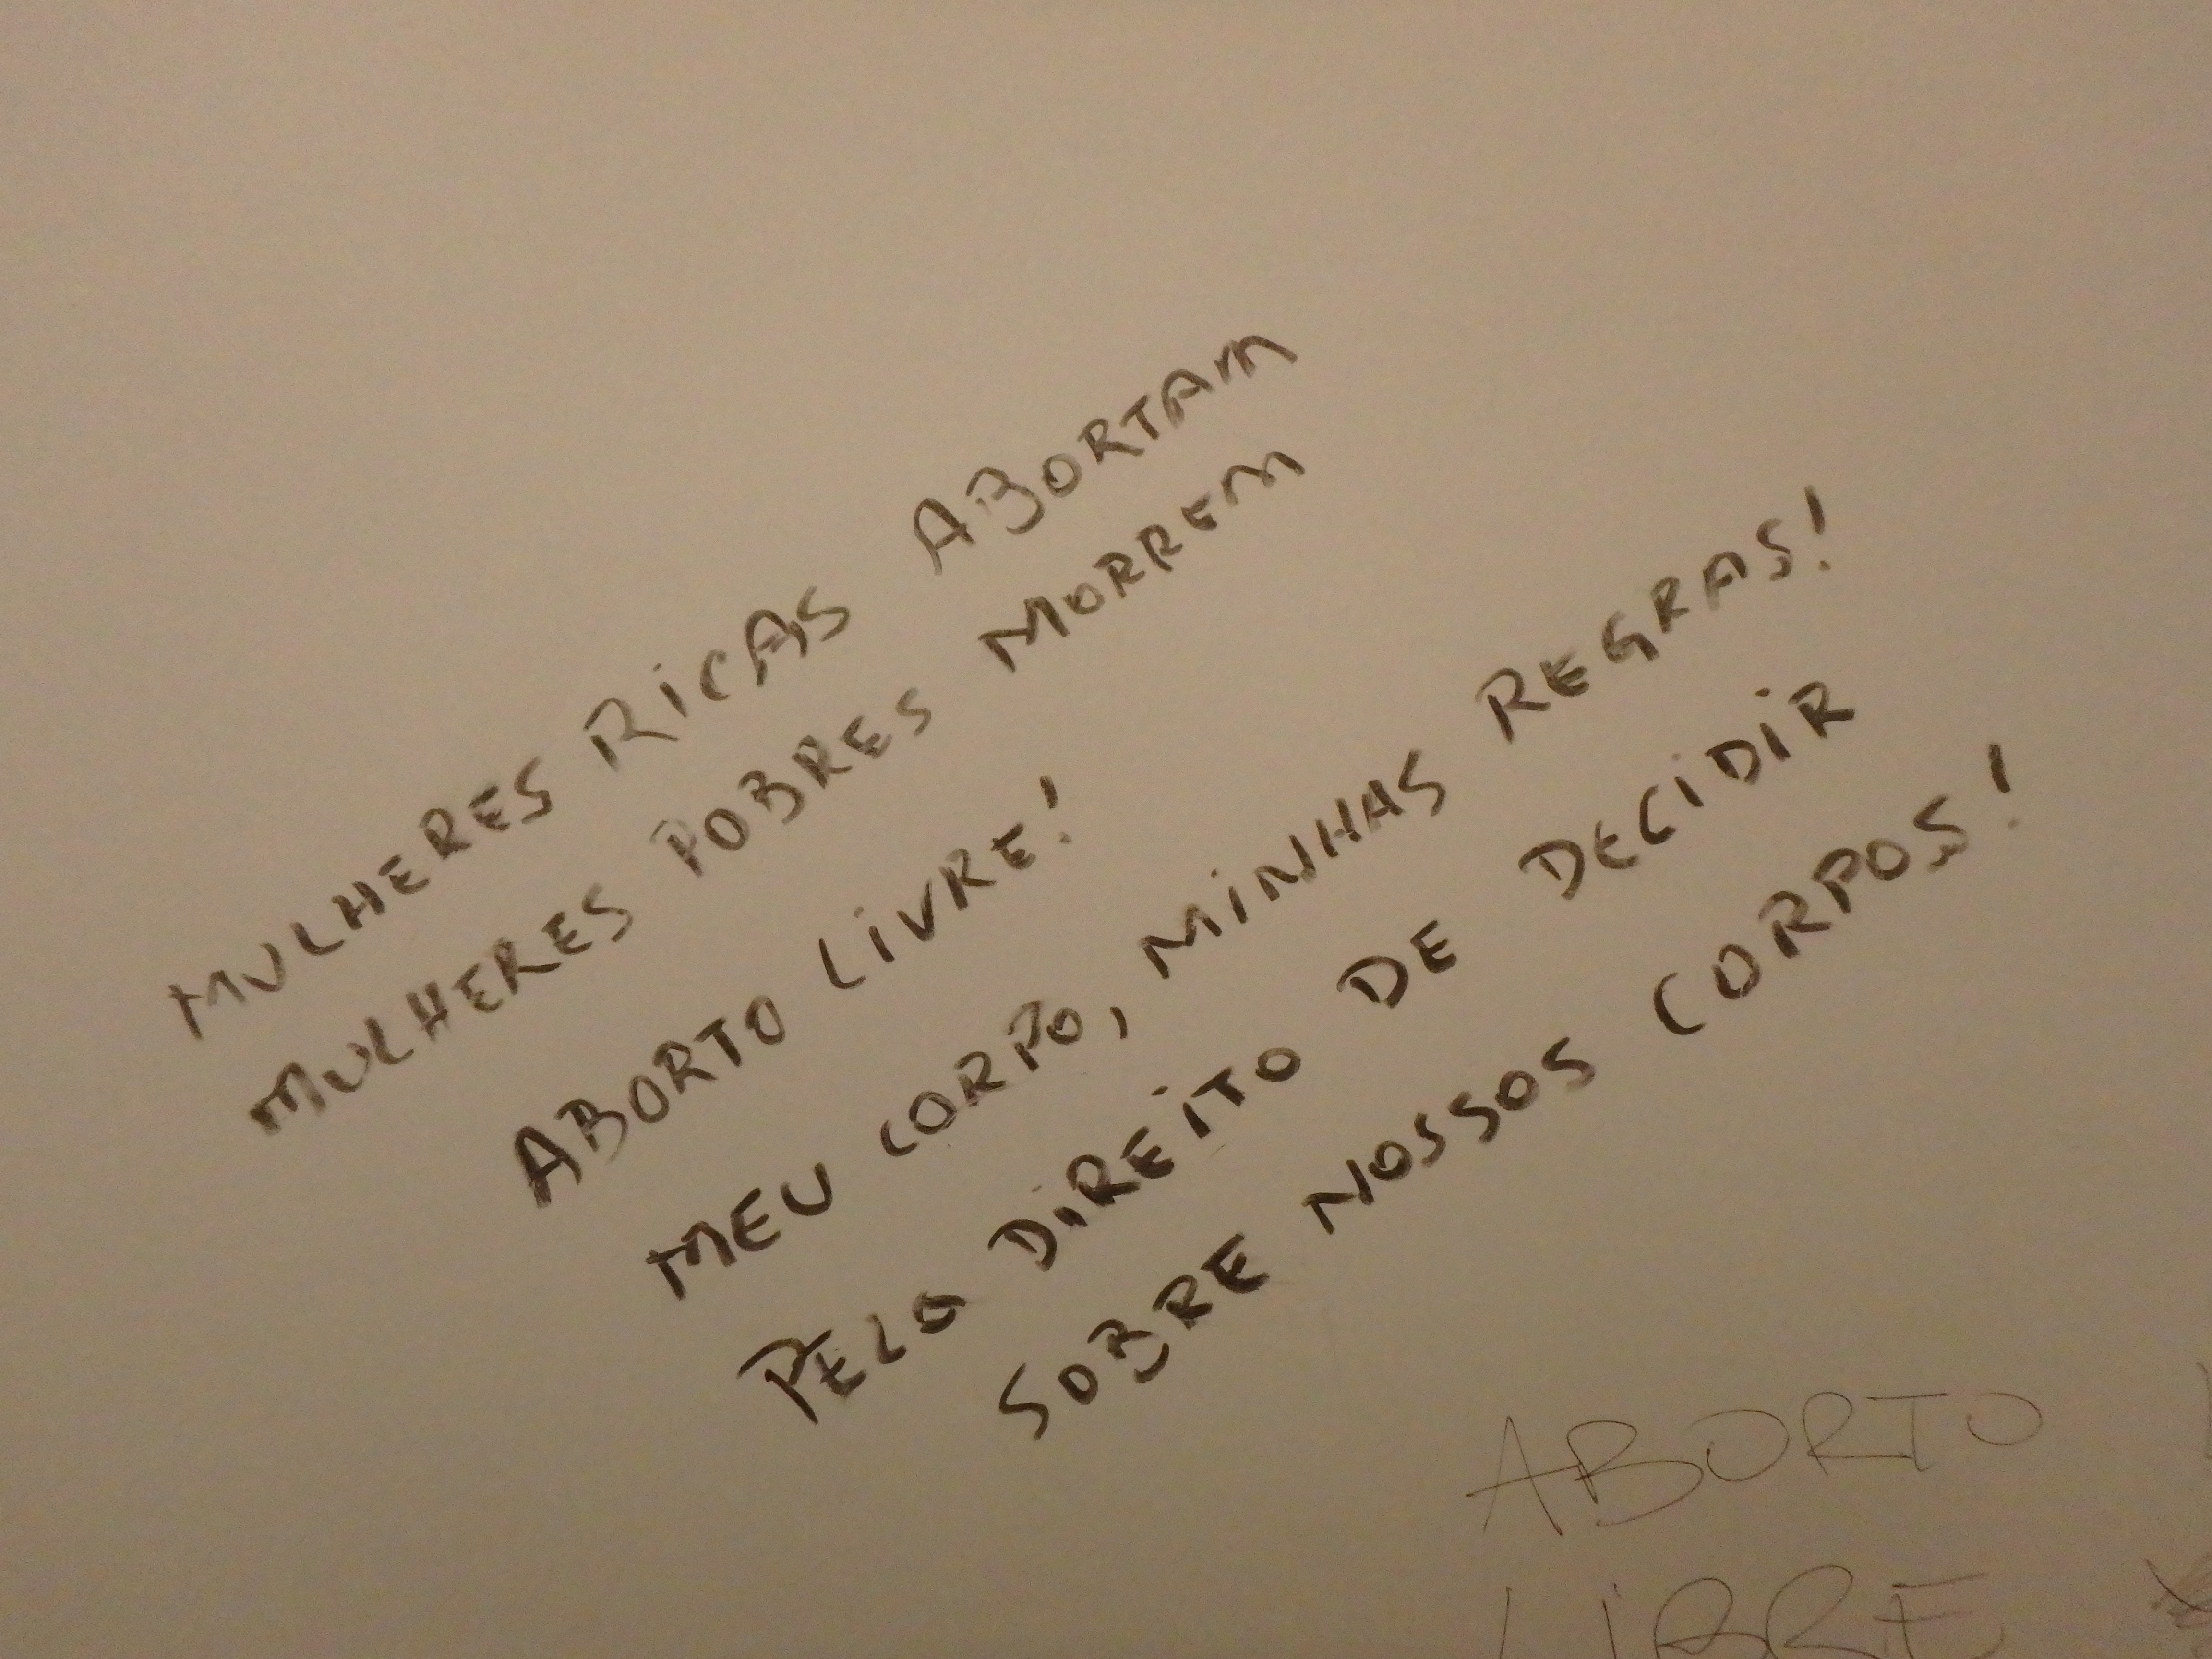 MULHERES RiCAS ABORTAM
MULHERES POBRES MORREM
ABORTO LiVRE!
MEU CORPO, MiNHAS REGRAS!
PELO DiREiTO DE DECiDiR
SOBRE NOSSOS CORPOS!
ABORTO
LIBRE